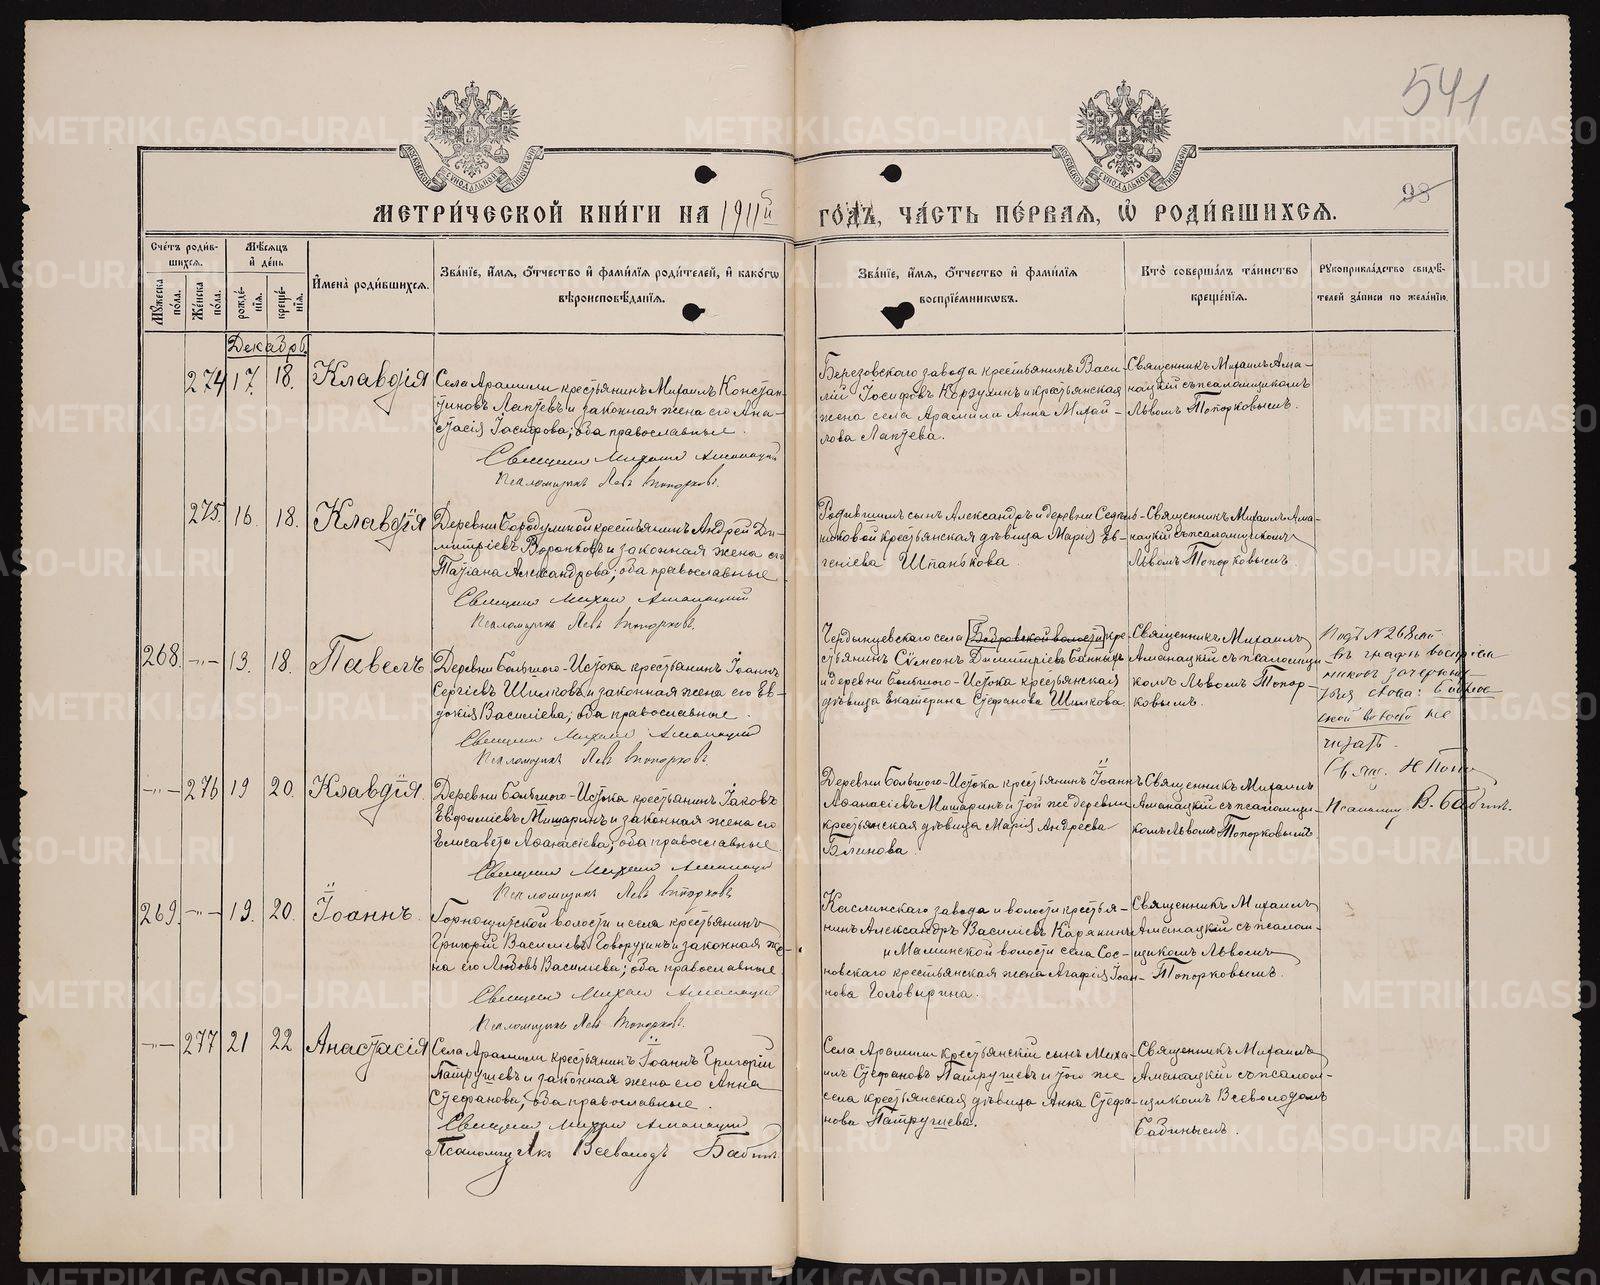 541
98
МЕТРИ́ЧЕСКОЙ КНИ́ГИ НА 1911й ГО́ДЪ, ЧА́СТЬ ПЕ́РВАЯ, Ѡ РОДИ́ВШИХСЯ.
Сче́тъ роди́в-
шихся.
Му́жеска
по́ла.
Же́нска
по́ла.
Мѣ́сяцъ
и҆ де́нь
рожде́-
нїя.
креще́-
нїя.
И҆мена̀ роди́вшихся.
Зва́нїе, и҆́мя, ѻ҆́тчество и҆ фами́лїя роди́телей, и҆ како́гѡ
вѣроисповѣ́данїя.
Зва́нїе, и҆́мя, ѻ҆́тчество и҆ фами́лїя
воспрїе́мникѡвъ.
Кто̀ соверша́лъ та́инство
креще́нїя.
Рꙋкоприкла́дство свидѣ́-
телей за́писи по жела́нїю.
Декабрь
274 17. 18. Клавдія
Села Арамили крестьянинъ Михаилъ Констан-
тиновъ Лаптевъ и законная жена его Ана-
стасія Іосифова; оба православные.
Священникъ Михаилъ Аманацкій
Псаломщикъ Левъ Топорковъ.
Березовскаго завода крестьянинъ Васи-
лій Іосифовъ Корзухинъ и крестьянская
жена села Арамили Анна Михай-
лова Лаптева.
Священникъ Михаилъ Ама-
нацкій съ псаломщикомъ
Львомъ Топорковымъ.
275. 16. 18. Клавдія
Деревни Бородулиной крестьянинъ Андрей Ди-
митріевъ Воронковъ и законная жена его
Татіана Александрова; оба православные
Священникъ Михаилъ Аманацкій
Псаломщикъ Левъ Топорковъ.
Родившимъ сынъ Александръ и деревни Седель-
никовой крестьянская дѣвица Марія Ев-
геніева Шпанькова.
Священникъ Михаилъ Ама-
нацкій съ псаломщикомъ
Львомъ Топорковымъ.
268. -"- 13. 18. Павелъ
Деревни Большого-Истока крестьянинъ Іоаннъ
Сергіевъ Шилковъ и законная жена его Ев-
докія Василіева; оба православные.
Священникъ Михаилъ Аманацкій
Псаломщикъ Левъ Топорковъ.
Чердынцевскаго села [Бобровской волости] кре-
стьянинъ Сѵмеонъ Димитріевъ Банныхъ
и деревни Большого-Истока крестьянская
дѣвица Екатерина Стефанова Шилкова.
Священникъ Михаилъ
Аманацкій съ псаломщи-
комъ Львомъ Топор-
ковымъ.
Подъ № 268 мъ
въ графѣ воспріем
никовъ зачеркну
тыя слова: Бобров
ской волости не
читать.
Свящ. Н Попо
Псаломщ В. Бабинъ.
-"- 276 19 20. Клавдія.
Деревни Большого-Истока крестьянинъ Іаковъ
Евфиміевъ Мишаринъ и законная жена его
Елисавета Аѳанасіева; оба православные
Священникъ Михаилъ Аманацкій
Псаломщикъ Левъ Топорковъ
Деревни Большого-Истока крестьянинъ Іоаннъ
Аѳанасіевъ Мишаринъ и той же деревни
крестьянская дѣвица Марія Андреева
Блинова.
Священникъ Михаилъ
Аманацкій съ псаломщи-
комъ Львомъ Топорковымъ
269. -"- 19. 20. Іоаннъ.
Горнощитской волости и села крестьянинъ
Григорій Василіевъ Говорухинъ и законная же-
на его Любовь Василіева; оба православные
Священникъ Михаилъ Аманацкій
Псаломщикъ Левъ Топорковъ.
Каслинскаго завода и волости крестья-
нинъ Александръ Василіевъ Карякинъ
и Маминской волости села Сос-
новскаго крестьянская жена Агафія Іоан-
нова Головырина.
Священникъ Михаилъ
Аманацкій съ псалом-
щикомъ Львомъ
Топорковымъ.
-"- 277 21 22 Анастасія
Села Арамили крестьянинъ Іоаннъ Григорій
Патрушевъ и законная жена его Анна
Стефанова; оба православные.
Священникъ Михаилъ Аманацкій
Псаломщикъ Всеволодъ Бабинъ.
Села Арамили крестьянскій сынъ Миха-
илъ Стефановъ Патрушевъ и той же
села крестьянская дѣвица Анна Стефа-
нова Патрушева.
Священникъ Михаилъ
Аманацкій съ псалом-
щикомъ Всеволодомъ
Бабинымъ.
METRIKI.GASO-URAL.RU